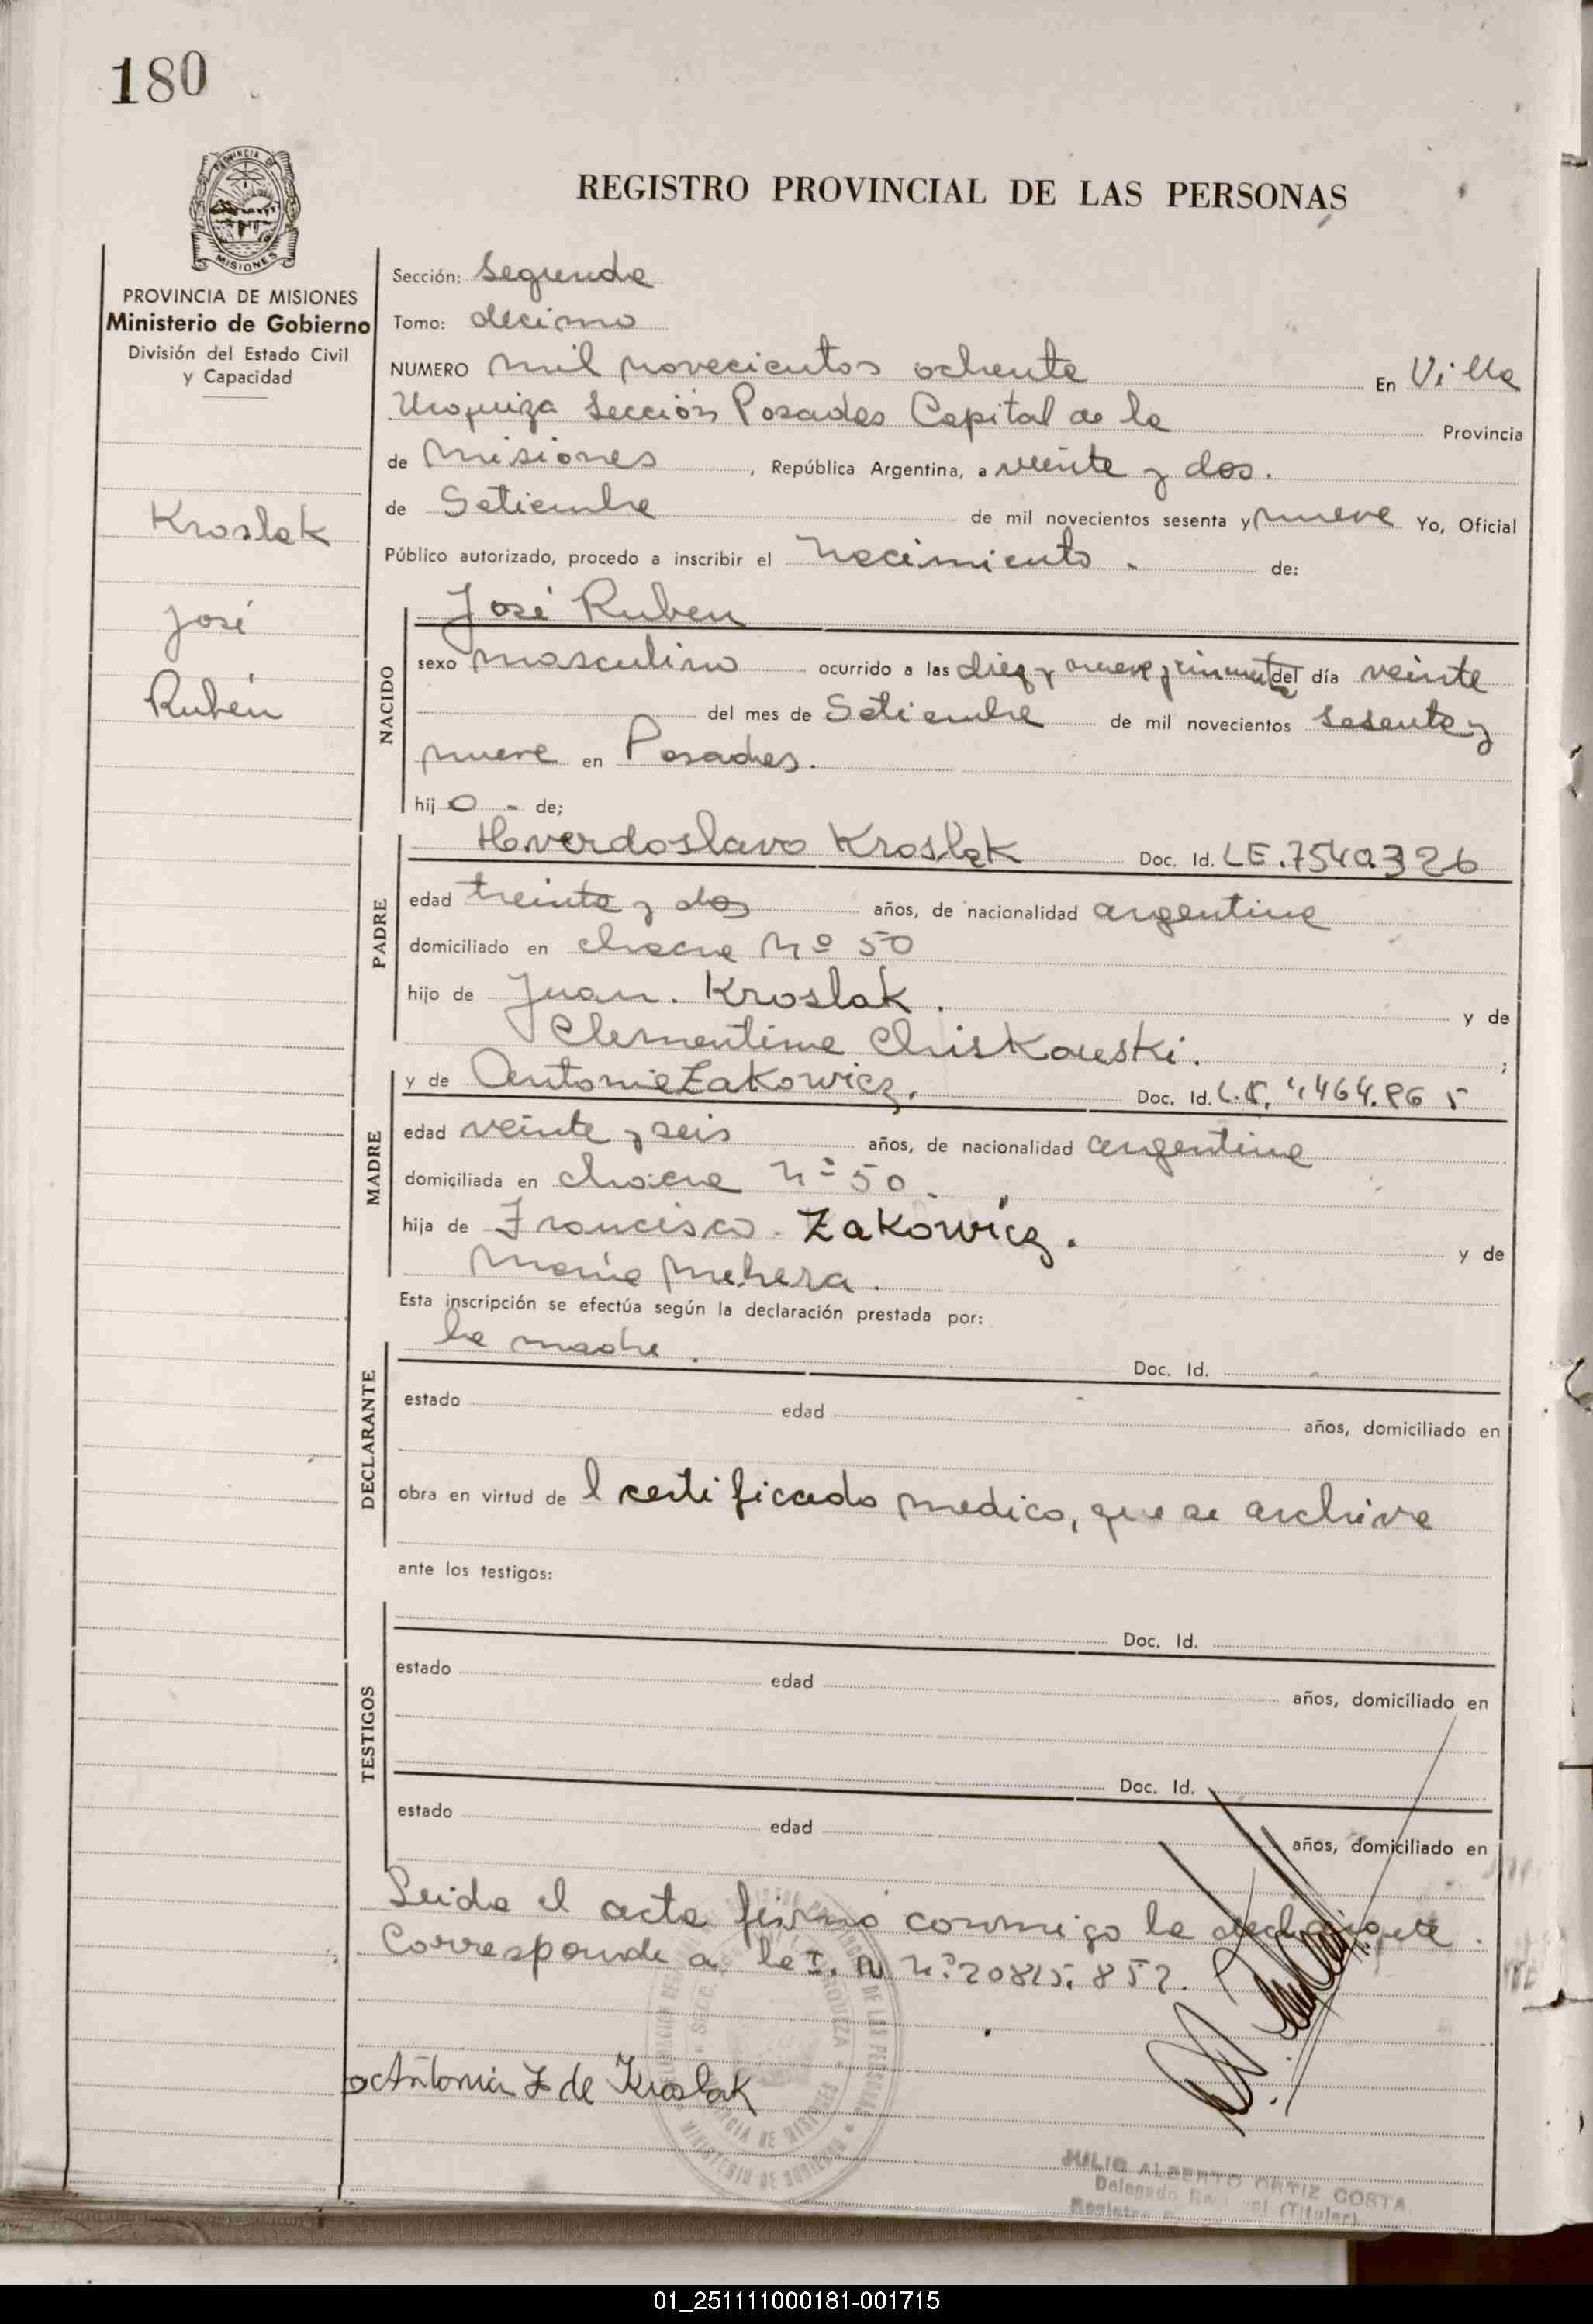 180
PROVINCIA DE
MISIONES
PROVINCIA DE MISIONES
Ministerio de Gobierno
División del Estado Civil
y Capacidad
Kroslak
José
Rubén
REGISTRO PROVINCIAL DE LAS PERSONAS
Sección: Segunda
Tomo: decimo
NUMERO mil novecientos ochenta En Villa
Urquiza Sección Posadas Capital de la Provincia
de Misiones, República Argentina, a veinte y dos.
de Setiembre de mil novecientos sesenta y nueve Yo, Oficial
Público autorizado, procedo a inscribir el nacimiento. de:
NACIDO
José Ruben
sexo masculino ocurrido a las diez y nueve y del día veinte
del mes de Setiembre de mil novecientos sesenta y
nueve en Posadas.
hijo - de;
PADRE
Hverdoslavo Kroslak Doc. Id. LE.7540326
edad treinta y dos años, de nacionalidad argentina
domiciliado en chacra Nº 50
hijo de Juan. Kroslak. y de
Clementina Chiskowski. ;
MADRE
y de Antonia Zakowicz. Doc. Id. L.C. 464.
edad veinte y seis años, de nacionalidad argentina
domiciliada en chacra nº 50.
hija de Francisco. Zakowicz. y de
Maria Mehera.
Esta inscripción se efectúa según la declaración prestada por:
DECLARANTE
la madre. Doc. Id.
estado edad años, domiciliado en
obra en virtud de l certificado medico, que se archiva
ante los testigos:
TESTIGOS
Doc. Id.
estado edad años, domiciliado en
Doc. Id.
estado edad años, domiciliado en
Leida el acta firmó conmigo la declarante.
Corresponde a la I. N nº 20815.852.
Antonia Z de Kroslak
JULIO ALBERTO ORTIZ COSTA
Delegado (Titular)
01_251111000181-001715